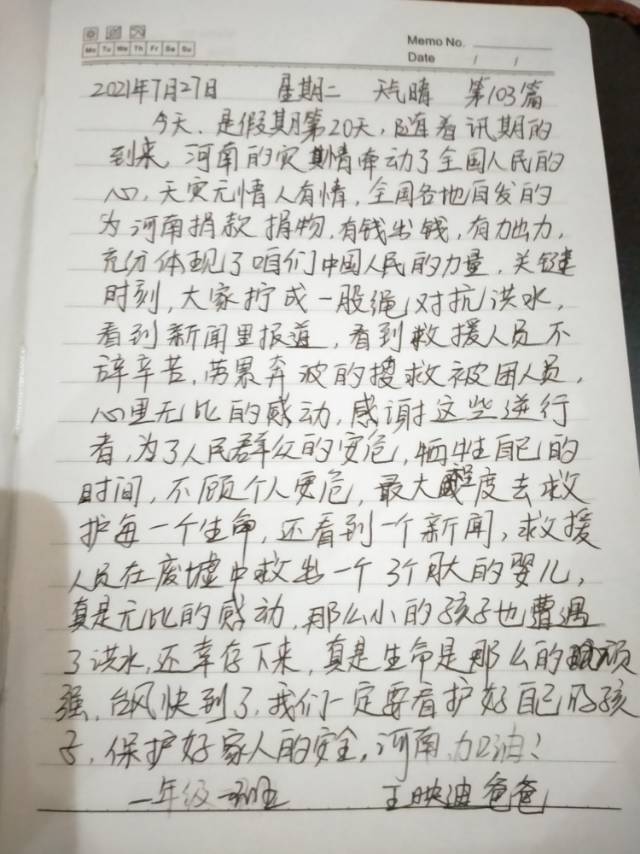 Memo No.
Mo Tu We Th Fr Sa Su
Date / /
2021年7月27日 星期二 天气晴 第103篇
今天,是假期第20天,随着汛期的
到来,河南的灾情牵动了全国人民的
心,天灾无情人有情,全国各地自发的
为河南捐款捐物,有钱出钱,有力出力,
充分体现了咱们中国人民的力量,关键
时刻,大家拧成一股绳对抗洪水,
看到新闻里报道,看到救援人员不
辞辛苦,劳累奔波的搜救被困人员,
心里无比的感动,感谢这些逆行
者,为了人民群众的安危,牺牲自己的
时间,不顾个人安危,最大程度去救
护每一个生命,还看到一个新闻,救援
人员在废墟中救出一个3个月大的婴儿,
真是无比的感动,那么小的孩子也遭遇
了洪水,还幸存下来,真是生命是那么的顽
强,台风快到了,我们一定要看护好自己的孩
子,保护好家人的安全,河南加油!
一年级一班 王映迪爸爸